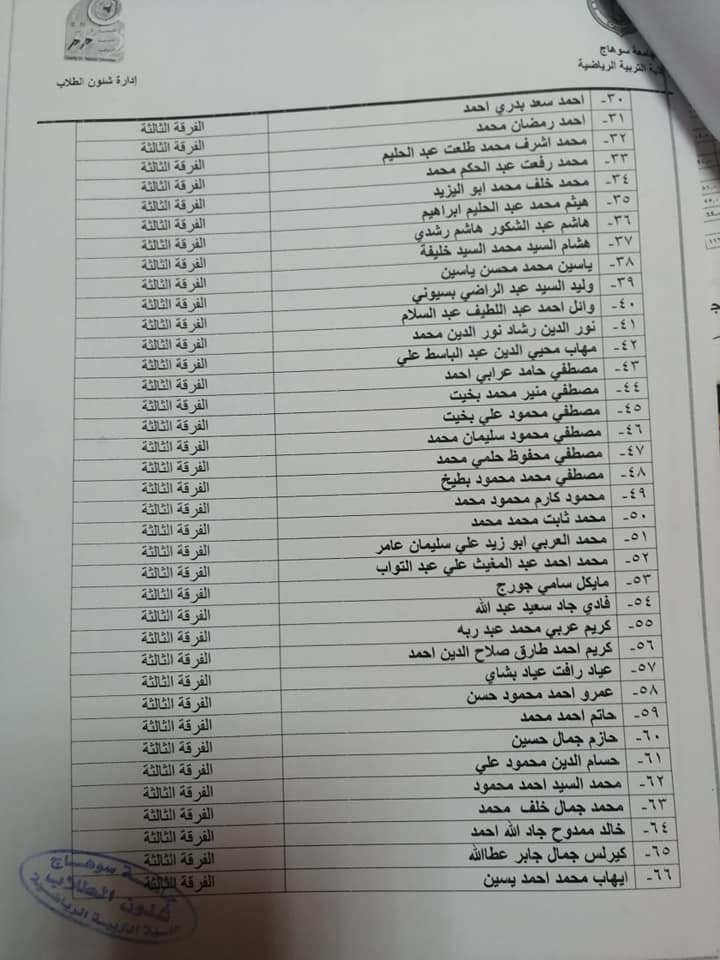 جامعة سوهاج
كلية التربية الرياضية
إدارة شئون الطلاب
٣٠- احمد سعد بدري احمد الفرقة الثالثة
٣١- احمد رمضان محمد الفرقة الثالثة
٣٢- محمد اشرف محمد طلعت عبد الحليم الفرقة الثالثة
٣٣- محمد رفعت عبد الحكم محمد الفرقة الثالثة
٣٤- محمد خلف محمد ابو اليزيد الفرقة الثالثة
٣٥- هيثم محمد عبد الحليم ابراهيم الفرقة الثالثة
٣٦- هاشم عبد الشكور هاشم رشدي الفرقة الثالثة
٣٧- هشام السيد محمد السيد خليفة الفرقة الثالثة
٣٨- ياسين محمد محسن ياسين الفرقة الثالثة
٣٩- وليد السيد عبد الراضي بسيوني الفرقة الثالثة
٤٠- وائل احمد عبد اللطيف عبد السلام الفرقة الثالثة
٤١- نور الدين رشاد نور الدين محمد الفرقة الثالثة
٤٢- مهاب محيي الدين عبد الباسط علي الفرقة الثالثة
٤٣- مصطفي حامد عرابي احمد الفرقة الثالثة
٤٤- مصطفي منير محمد بخيت الفرقة الثالثة
٤٥- مصطفي محمود علي بخيت الفرقة الثالثة
٤٦- مصطفي محمود سليمان محمد الفرقة الثالثة
٤٧- مصطفي محفوظ حلمي محمد الفرقة الثالثة
٤٨- مصطفي محمد محمود بطيخ الفرقة الثالثة
٤٩- محمود كارم محمود محمد الفرقة الثالثة
٥٠- محمد ثابت محمد محمد الفرقة الثالثة
٥١- محمد العربي ابو زيد علي سليمان عامر الفرقة الثالثة
٥٢- محمد احمد عبد المغيث علي عبد التواب الفرقة الثالثة
٥٣- مايكل سامي جورج الفرقة الثالثة
٥٤- فادي جاد سعيد عبد الله الفرقة الثالثة
٥٥- كريم عربي محمد عبد ربه الفرقة الثالثة
٥٦- كريم احمد طارق صلاح الدين احمد الفرقة الثالثة
٥٧- عياد رافت عياد بشاي الفرقة الثالثة
٥٨- عمرو احمد محمود حسن الفرقة الثالثة
٥٩- حاتم احمد محمد الفرقة الثالثة
٦٠- حازم جمال حسين الفرقة الثالثة
٦١- حسام الدين محمود علي الفرقة الثالثة
٦٢- محمد السيد احمد محمود الفرقة الثالثة
٦٣- محمد جمال خلف محمد الفرقة الثالثة
٦٤- خالد ممدوح جاد الله احمد الفرقة الثالثة
٦٥- كيرلس جمال جابر عطاالله الفرقة الثالثة
٦٦- ايهاب محمد احمد يسين الفرقة الثالثة
سوهاج
شئون الطلاب
التربية الرياضية